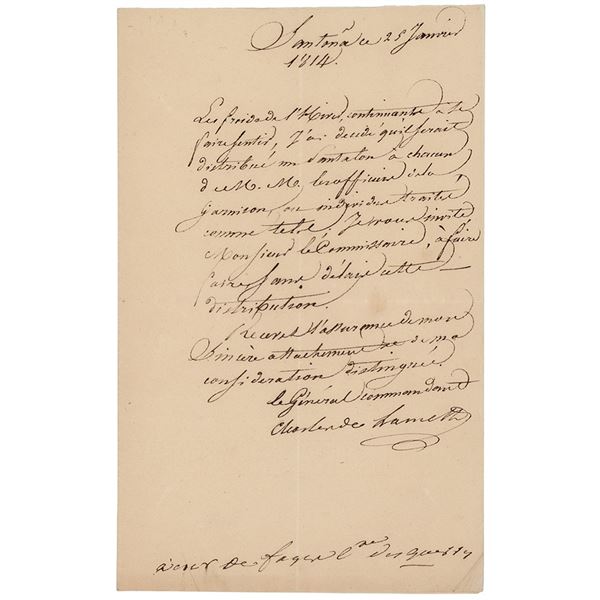 Santoña ce 25 Janvier
1814.
Les froids de l'hiver, continuants à se
faire sentir, J'ai décidé qu'il serait
distribué un Pantalon à chacun
de M. M. les officiers de la
garnison, ou individus traités
comme tels. Je vous invite
Monsieur le Commissaire, à faire
faire sans délais cette
distribution.
Recevez l'assurance de mon
Sincère attachement de ma
considération distinguée.
le Général commandant
Charles de Lameth
à de Cre des guerres